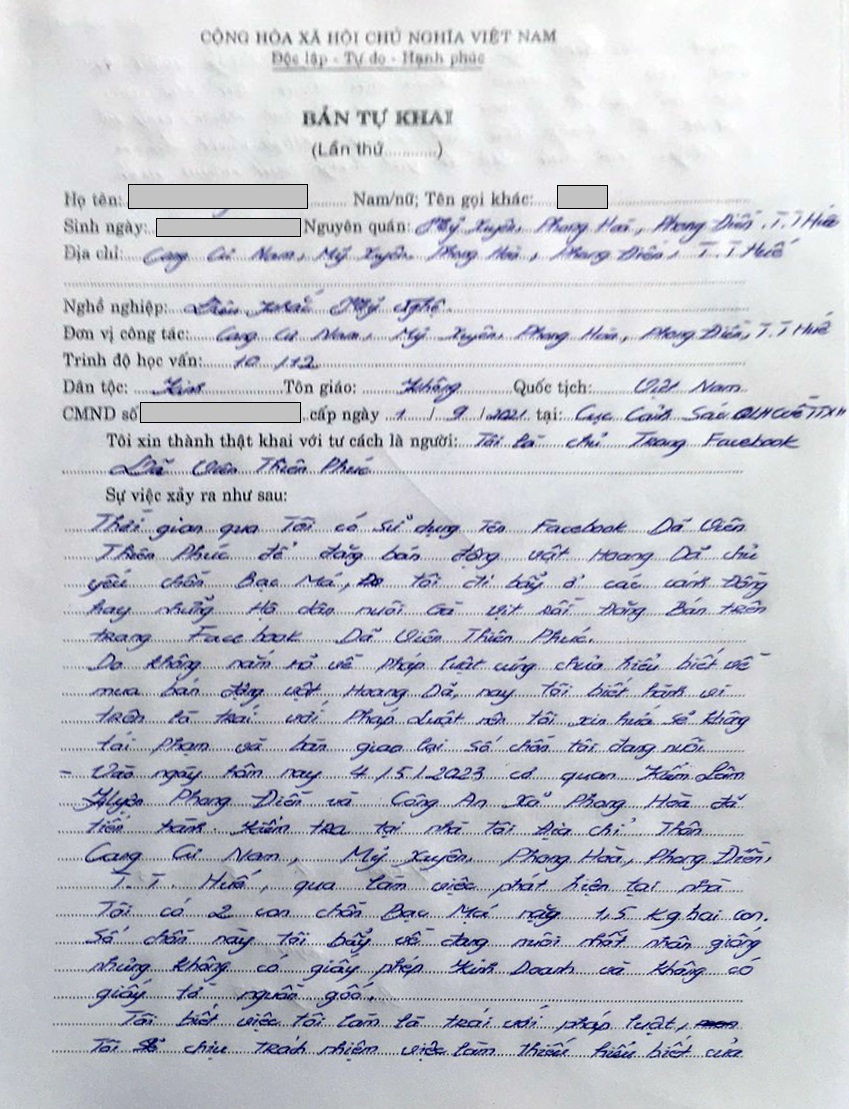 CỘNG HÒA XÃ HỘI CHỦ NGHĨA VIỆT NAM
Độc lập - Tự do - Hạnh phúc
BẢN TỰ KHAI
(Lần thứ..........)
Họ tên: ......... Nam/nữ; Tên gọi khác:
Sinh ngày: Nguyên quán: Mỹ Xuyên, Phong Hoà, Phong Điền, T.T Huế
Địa chỉ: Cang Cư Nam, Mỹ Xuyên, Phong Hoà, Phong Điền, T.T Huế
Nghề nghiệp: Điêu khắc Mỹ Nghệ.
Đơn vị công tác: Cang Cư Nam, Mỹ Xuyên, Phong Hoà, Phong Điền, T.T Huế
Trình độ học vấn: 10/12
Dân tộc: Kinh Tôn giáo: Không Quốc tịch: Việt Nam
CMND số cấp ngày 1/9/2021 tại: Cục Cảnh Sát QLHC về TTXH
Tôi xin thành thật khai với tư cách là người: Tôi là chủ Trang Facebook
Dã Viên Thiên Phúc
Sự việc xảy ra như sau:
Thời gian qua Tôi có sử dụng tên Facebook Dã Viên
Thiên Phúc để đăng bán động vật Hoang Dã chủ
yếu chồn Bạc Má, Do tôi đi bẫy ở các cánh Đồng
hay những Hộ dân nuôi Gà vịt rồi Đăng Bán trên
trang Facebook Dã Viên Thiên Phúc.
Do không nắm rõ về pháp luật cũng chưa hiểu biết về
mua bán động vật Hoang Dã, nay Tôi biết hành vi
trên là trái với Pháp Luật nên tôi xin hứa sẽ không
tái Phạm và bàn giao lại Số chồn tôi đang nuôi
- Vào ngày hôm nay 4/5/2023 cơ quan Kiểm Lâm
Huyện Phong Điền và Công An Xã Phong Hoà đã
tiến hành kiểm tra tại nhà tôi Địa chỉ Thôn
Cang Cư Nam, Mỹ Xuyên, Phong Hoà, Phong Điền,
T.T. Huế, qua làm việc phát hiện tại nhà
Tôi có 2 con chồn Bạc Má nặng 1,5 kg hai con.
Số chồn này tôi bẫy về đang nuôi nhốt nhân giống
nhưng không có giấy phép Kinh Doanh và không có
giấy tờ nguồn gốc.
Tôi biết việc tôi làm là trái với pháp luật,
Tôi sẽ chịu trách nhiệm việc làm thiếu hiểu biết của